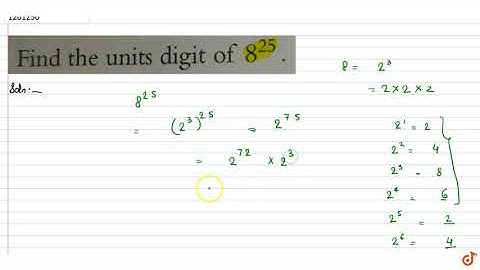 1201250
Find the units digit of 8²⁵.
Soln:-
8²⁵
= (2³)²⁵ = 2⁷⁵
= 2⁷² × 2³
8 = 2³
= 2 × 2 × 2
2¹ = 2
2² = 4
2³ - 8
2⁴ = 6
2⁵ = 2
2⁶ = 4
d